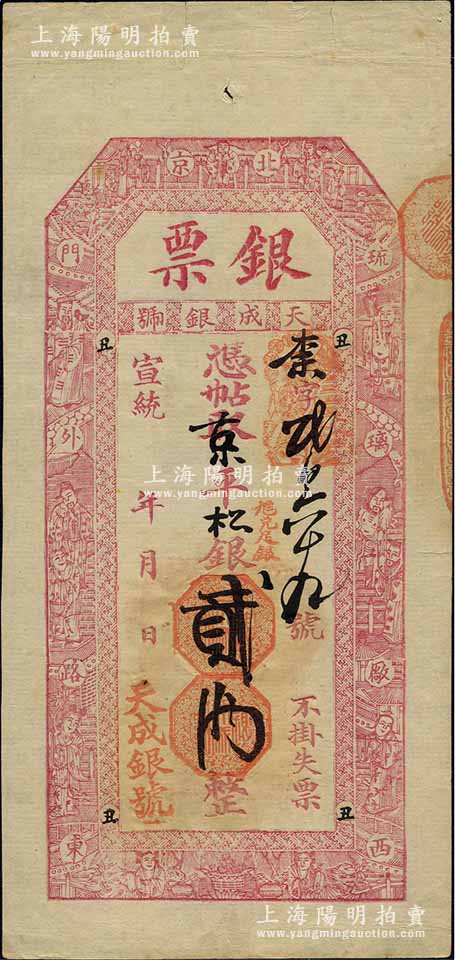 上海陽明拍賣
www.yangmingauction.com
上海陽明拍賣
www.yangmingauction.com
北京
琉璃廠西
門外路東
銀票
天成銀號
丑
丑
丑
丑
字
號
不掛失票
憑帖發京平松銀貳兩整
宣統 年 月 日
天成銀號
上海陽明拍賣
www.yangmingauction.com
上海陽明拍賣
www.yangmingauction.com